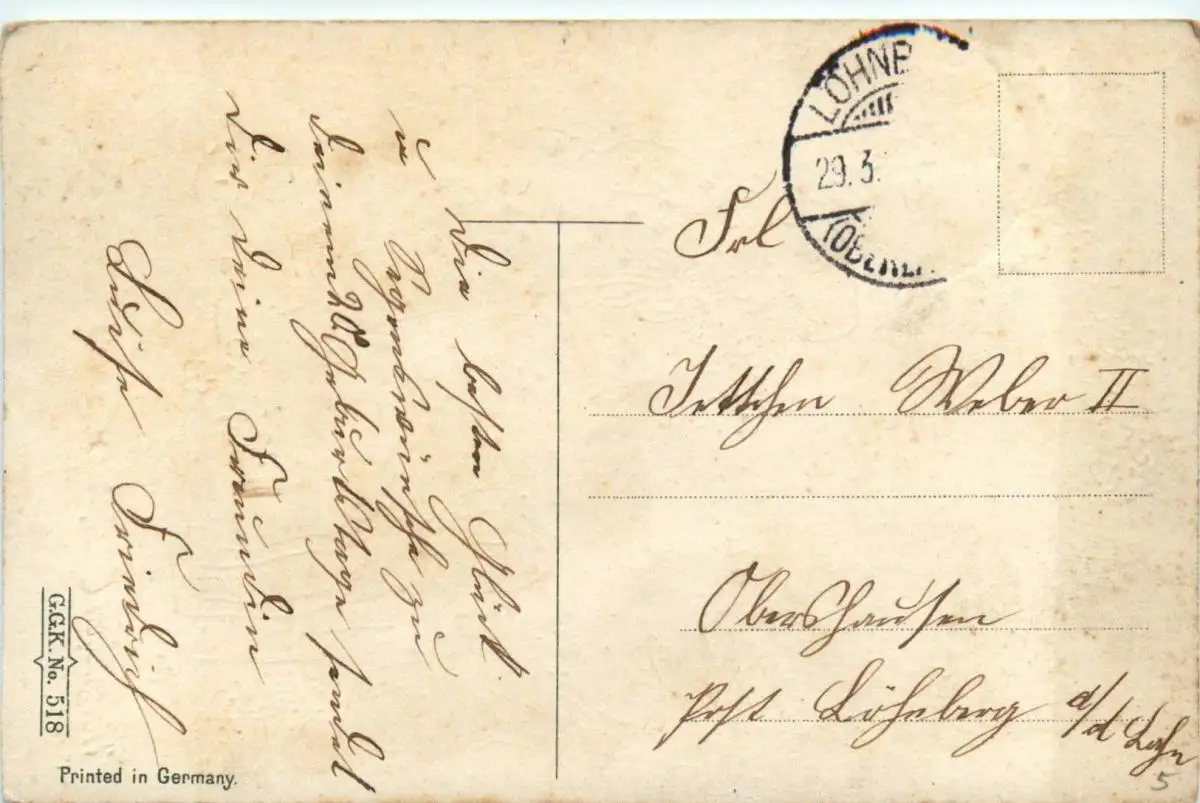 Die besten Glück
u Segenswünsche zu
Deinem 20 Geburtstage sendet
Dir Deine Freundin
Luise Friedrich
LÖHNB
29.3.
(OBERLA
Frl
Jettchen Weber II
Obershausen
Post Löhnberg a/d Lahn
5
G.G.K. No. 518
Printed in Germany.